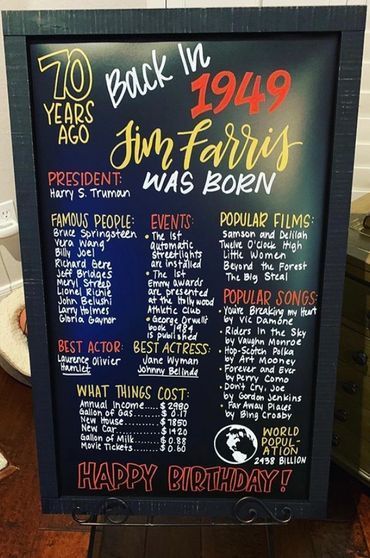 70
YEARS
AGO
Back In
1949
Jim Farris
WAS BORN
PRESIDENT:
Harry S. Truman
FAMOUS PEOPLE:
Bruce Springsteen
Vera Wang
Billy Joel
Richard Gere
Jeff Bridges
Meryl Streep
Lionel Richie
John Belushi
Larry Holmes
Gloria Gaynor
EVENTS:
• The 1st
automatic
streetlights
are installed
• The 1st
Emmy awards
are presented
at the Hollywood
Athletic Club
• George Orwell
book 1984
is published
POPULAR FILMS:
Samson and Delilah
Twelve O'clock High
Little Women
Beyond the Forest
The Big Steal
POPULAR SONGS:
• You're Breaking my Heart
by Vic Damone
• Riders In the Sky
by Vaughn Monroe
• Hop-Scotch Polka
by Art Mooney
• Forever and Ever
by Perry Como
• Don't Cry, Joe
by Gordon Jenkins
• Far Away Places
by Bing Crosby
BEST ACTOR:
Laurence Olivier
Hamlet
BEST ACTRESS:
Jane Wyman
Johnny Belinda
WHAT THINGS COST:
Annual Income.... $ 2980
Gallon of Gas..... $ 0.17
New House....... $ 7850
New Car.......... $ 1420
Gallon of Milk..... $ 0.88
Movie Tickets..... $ 0.60
WORLD
POPUL-
ATION
2438 BILLION
HAPPY BIRTHDAY!